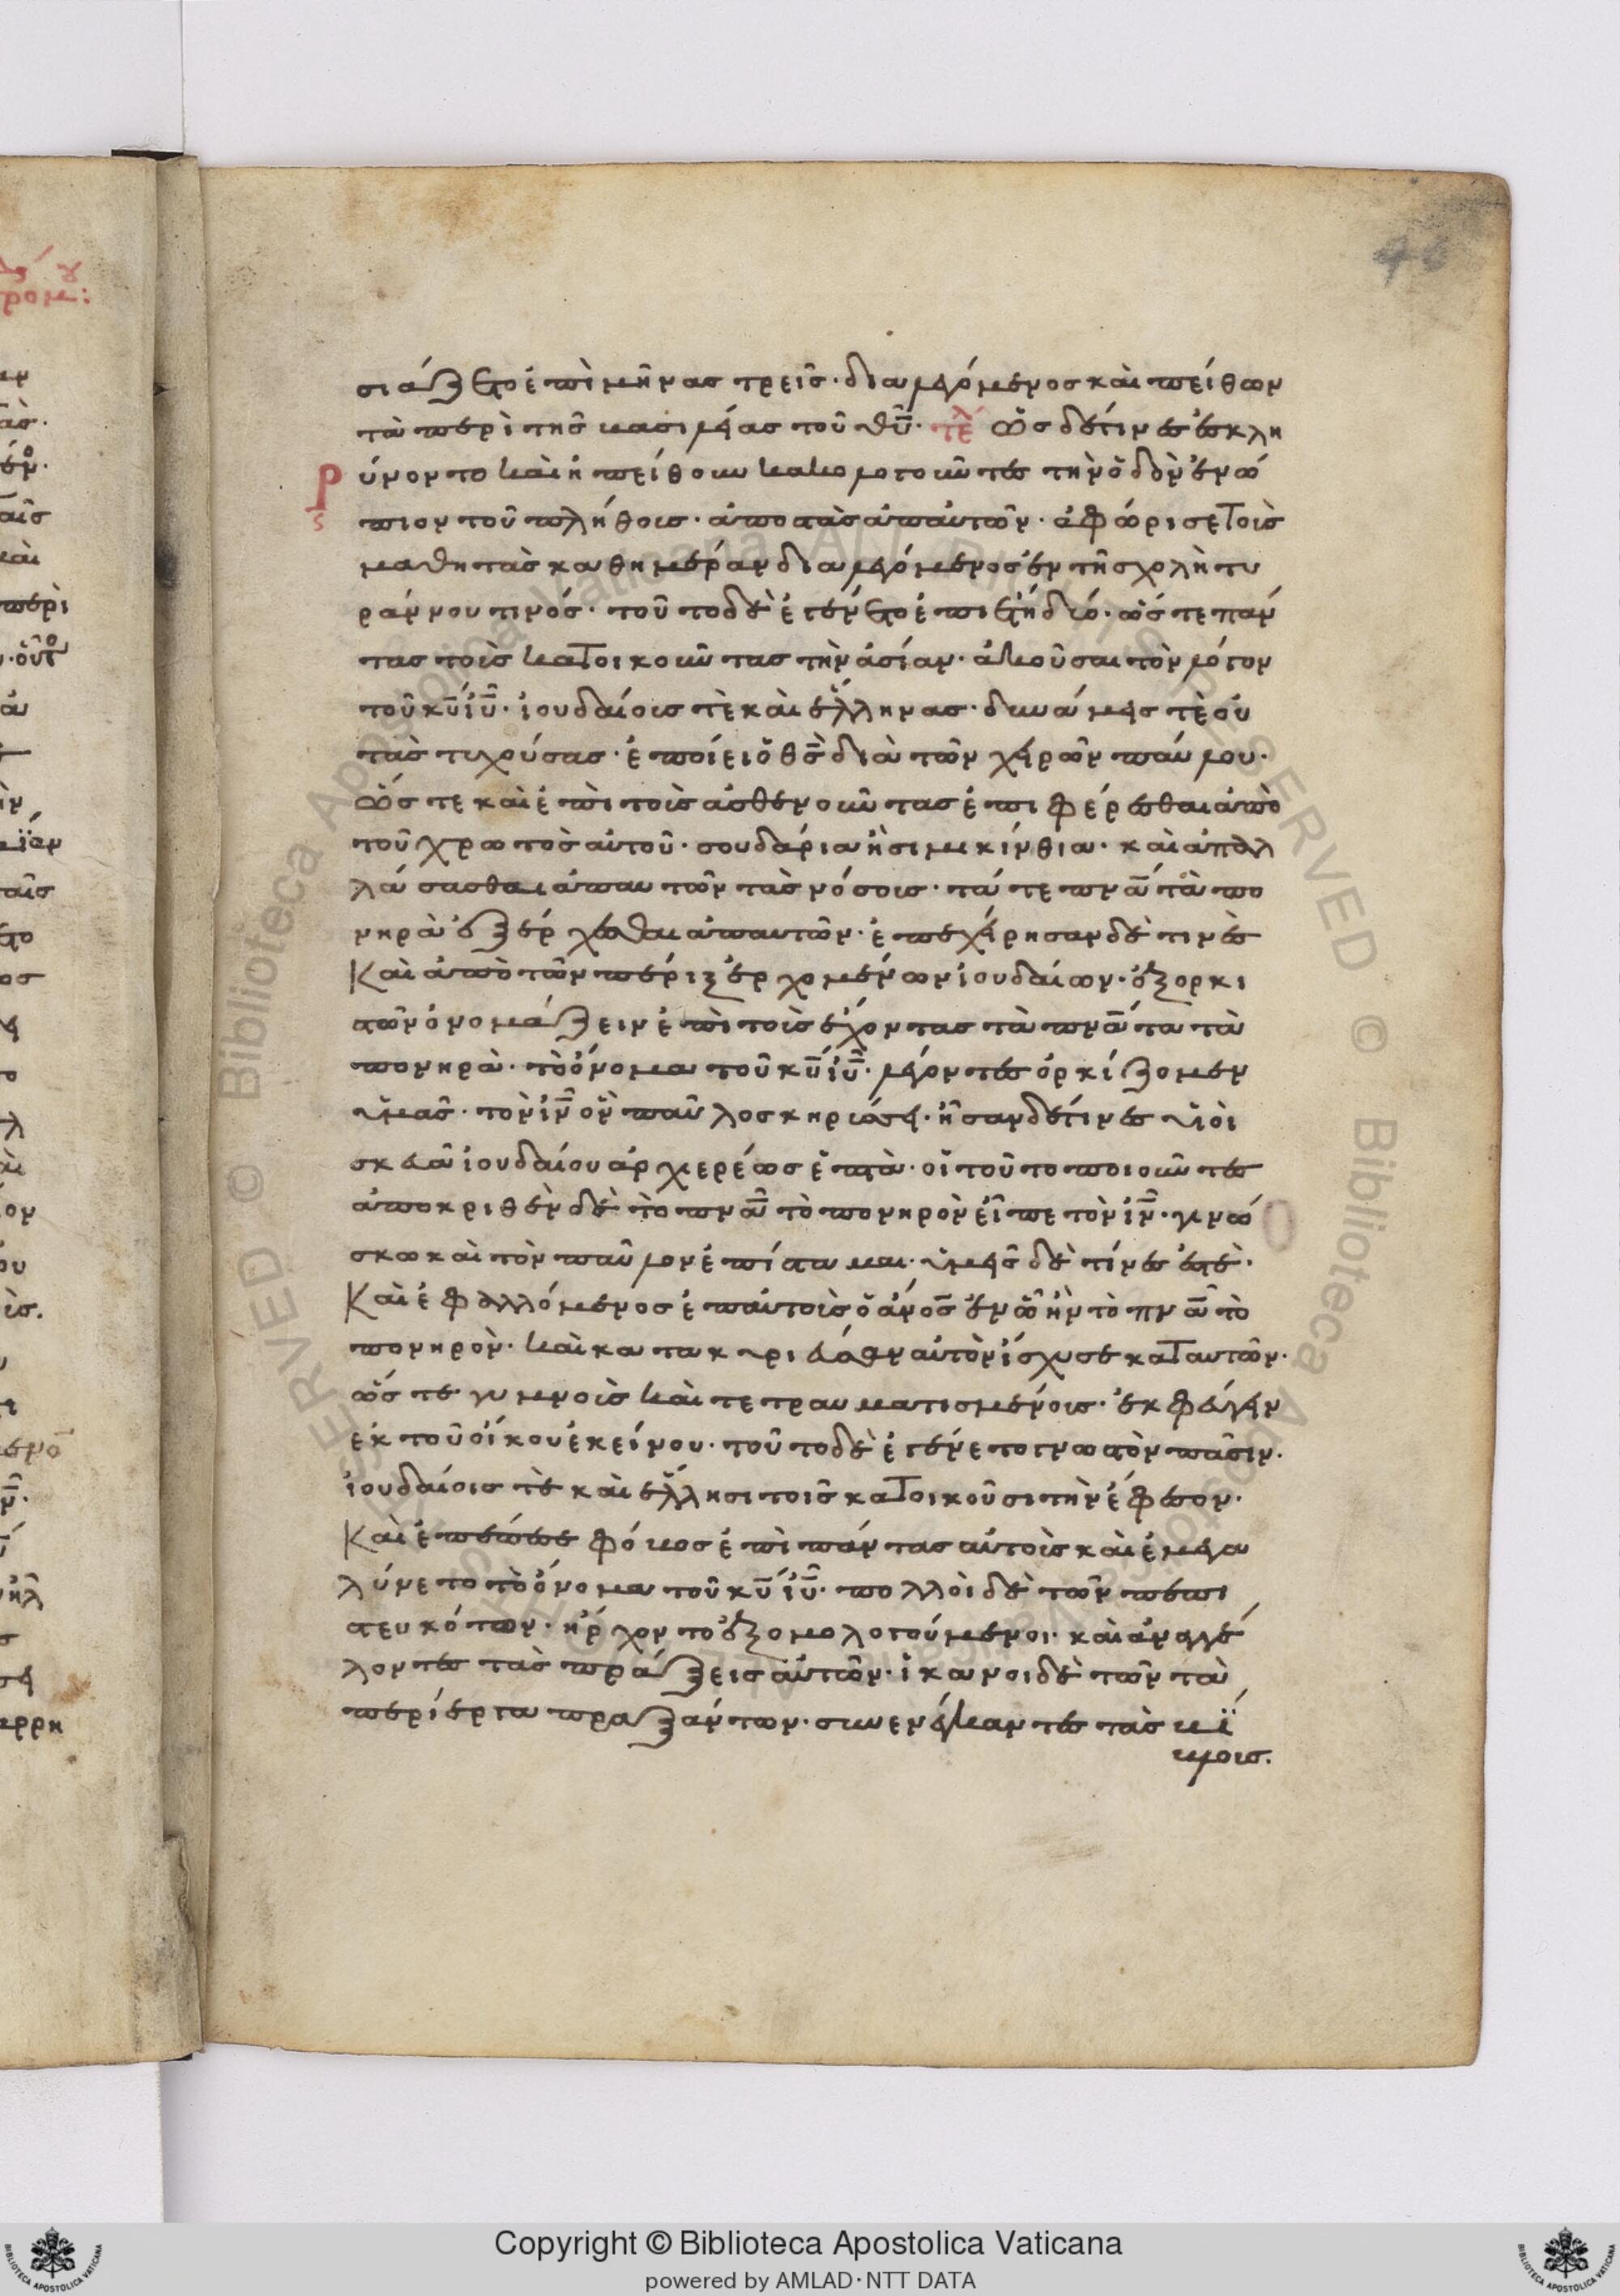 46
σιάζετο ἐπὶ μῆνας τρεῖς· διαλεγόμενος καὶ πείθων
τὰ περὶ τῆς βασιλείας τοῦ θ̅υ̅· τελ ὡς δέ τινες ἐσκλη
ρύνοντο καὶ ἠπείθουν κακολογοῦντες τὴν ὁδὸν ἐνώ
πιον τοῦ πλήθους· ἀποστὰς ἀπ' αὐτῶν· ἀφώρισε τοὺς
μαθητὰς καθημέραν διαλεγόμενος ἐν τῆ σχολῆ τυ
ράννου τινός· τοῦτο δὲ ἐγένετο ἐπι ἔτη δύο· ὥστε πάν
τας τοὺς κατοικοῦντας τὴν ἀσίαν· ἀκοῦσαι τὸν λόγον
τοῦ κ̅υ̅ ι̅υ̅· ἰουδαίους τὲ καὶ ἕλληνας· δυνάμεις τὲ οὐ
τὰς τυχούσας· ἐποίει ὁ θ̅ς̅ διὰ τῶν χειρῶν παύλου·
ὥστε καὶ ἐπὶ τοὺς ἀσθενοῦντας ἐπιφέρεσθαι ἀπὸ
τοῦ χρωτὸς αὐτοῦ· σουδάρια ἢ σιμικίνθια· καὶ ἀπαλ
λάσσασθαι ἀπ' αὐτῶν τὰς νόσους· τά τε πν̅α̅τα πο
νηρὰ ἐξέρχεσθαι ἀπ' αὐτῶν· ἐπεχείρησαν δὲ τινὲς
Καὶ ἀπὸ τῶν περιεξερχομένων ἰουδαίων· ἐξορκι
στῶν ὀνομάζειν ἐπὶ τοὺς ἔχοντας τὰ πν̅α̅τα τὰ
πονηρὰ· τὸ ὄνομα τοῦ κ̅υ̅ ι̅υ̅· λέγοντες ὁρκίζομεν
ὑμᾶς· τὸν ι̅ν̅ ὃν παῦλος κηρύσσει· ἦσαν δέ τινες υἱοὶ
σκευᾶ ἰουδαίου ἀρχιερέως ἑπτὰ· οἳ τοῦτο ποιοῦντες
ἀποκριθὲν δὲ τὸ πν̅α̅ τὸ πονηρὸν εἶπε τὸν ι̅ν̅· γινώ
σκω καὶ τὸν παῦλον ἐπίσταμαι· ὑμεῖς δὲ τίνες ἐστὲ·
Καὶ ἐφαλλόμενος ἐπ' αὐτοὺς ὁ α̅ν̅ο̅ς̅ ἐν ὧ ἦν τὸ πν̅α̅ τὸ
πονηρὸν· καὶ κατακυριεῦσαν αὐτὸν ἴσχυσε κατ' αυτῶν·
ὥστε γυμνοὺς καὶ τετραυματισμένους· ἐκφυγεῖν
ἐκ τοῦ οἴκου ἐκείνου· τοῦτο δὲ ἐγένετο γνωστὸν πᾶσιν·
ἰουδαίοις τὲ καὶ ἕλλησι τοῖς κατοικοῦσι τὴν ἔφεσον·
Καὶ ἐπέπεσε φόβος ἐπὶ πάντας αὐτοὺς καὶ ἐμεγα
λύνετο τὸ ὄνομα τοῦ κ̅υ̅ ι̅υ̅· πολλοὶ δὲ τῶν πεπι
στευκότων· ἤρχοντο ἐξομολογούμενοι· καὶ ἀναγγέ
λοντες τὰς πράξεις αὐτῶν· ἱκανοὶ δὲ τῶν τὰ
περίεργα πραξάντων· συνενέγκαντες τὰς βί
βλους.